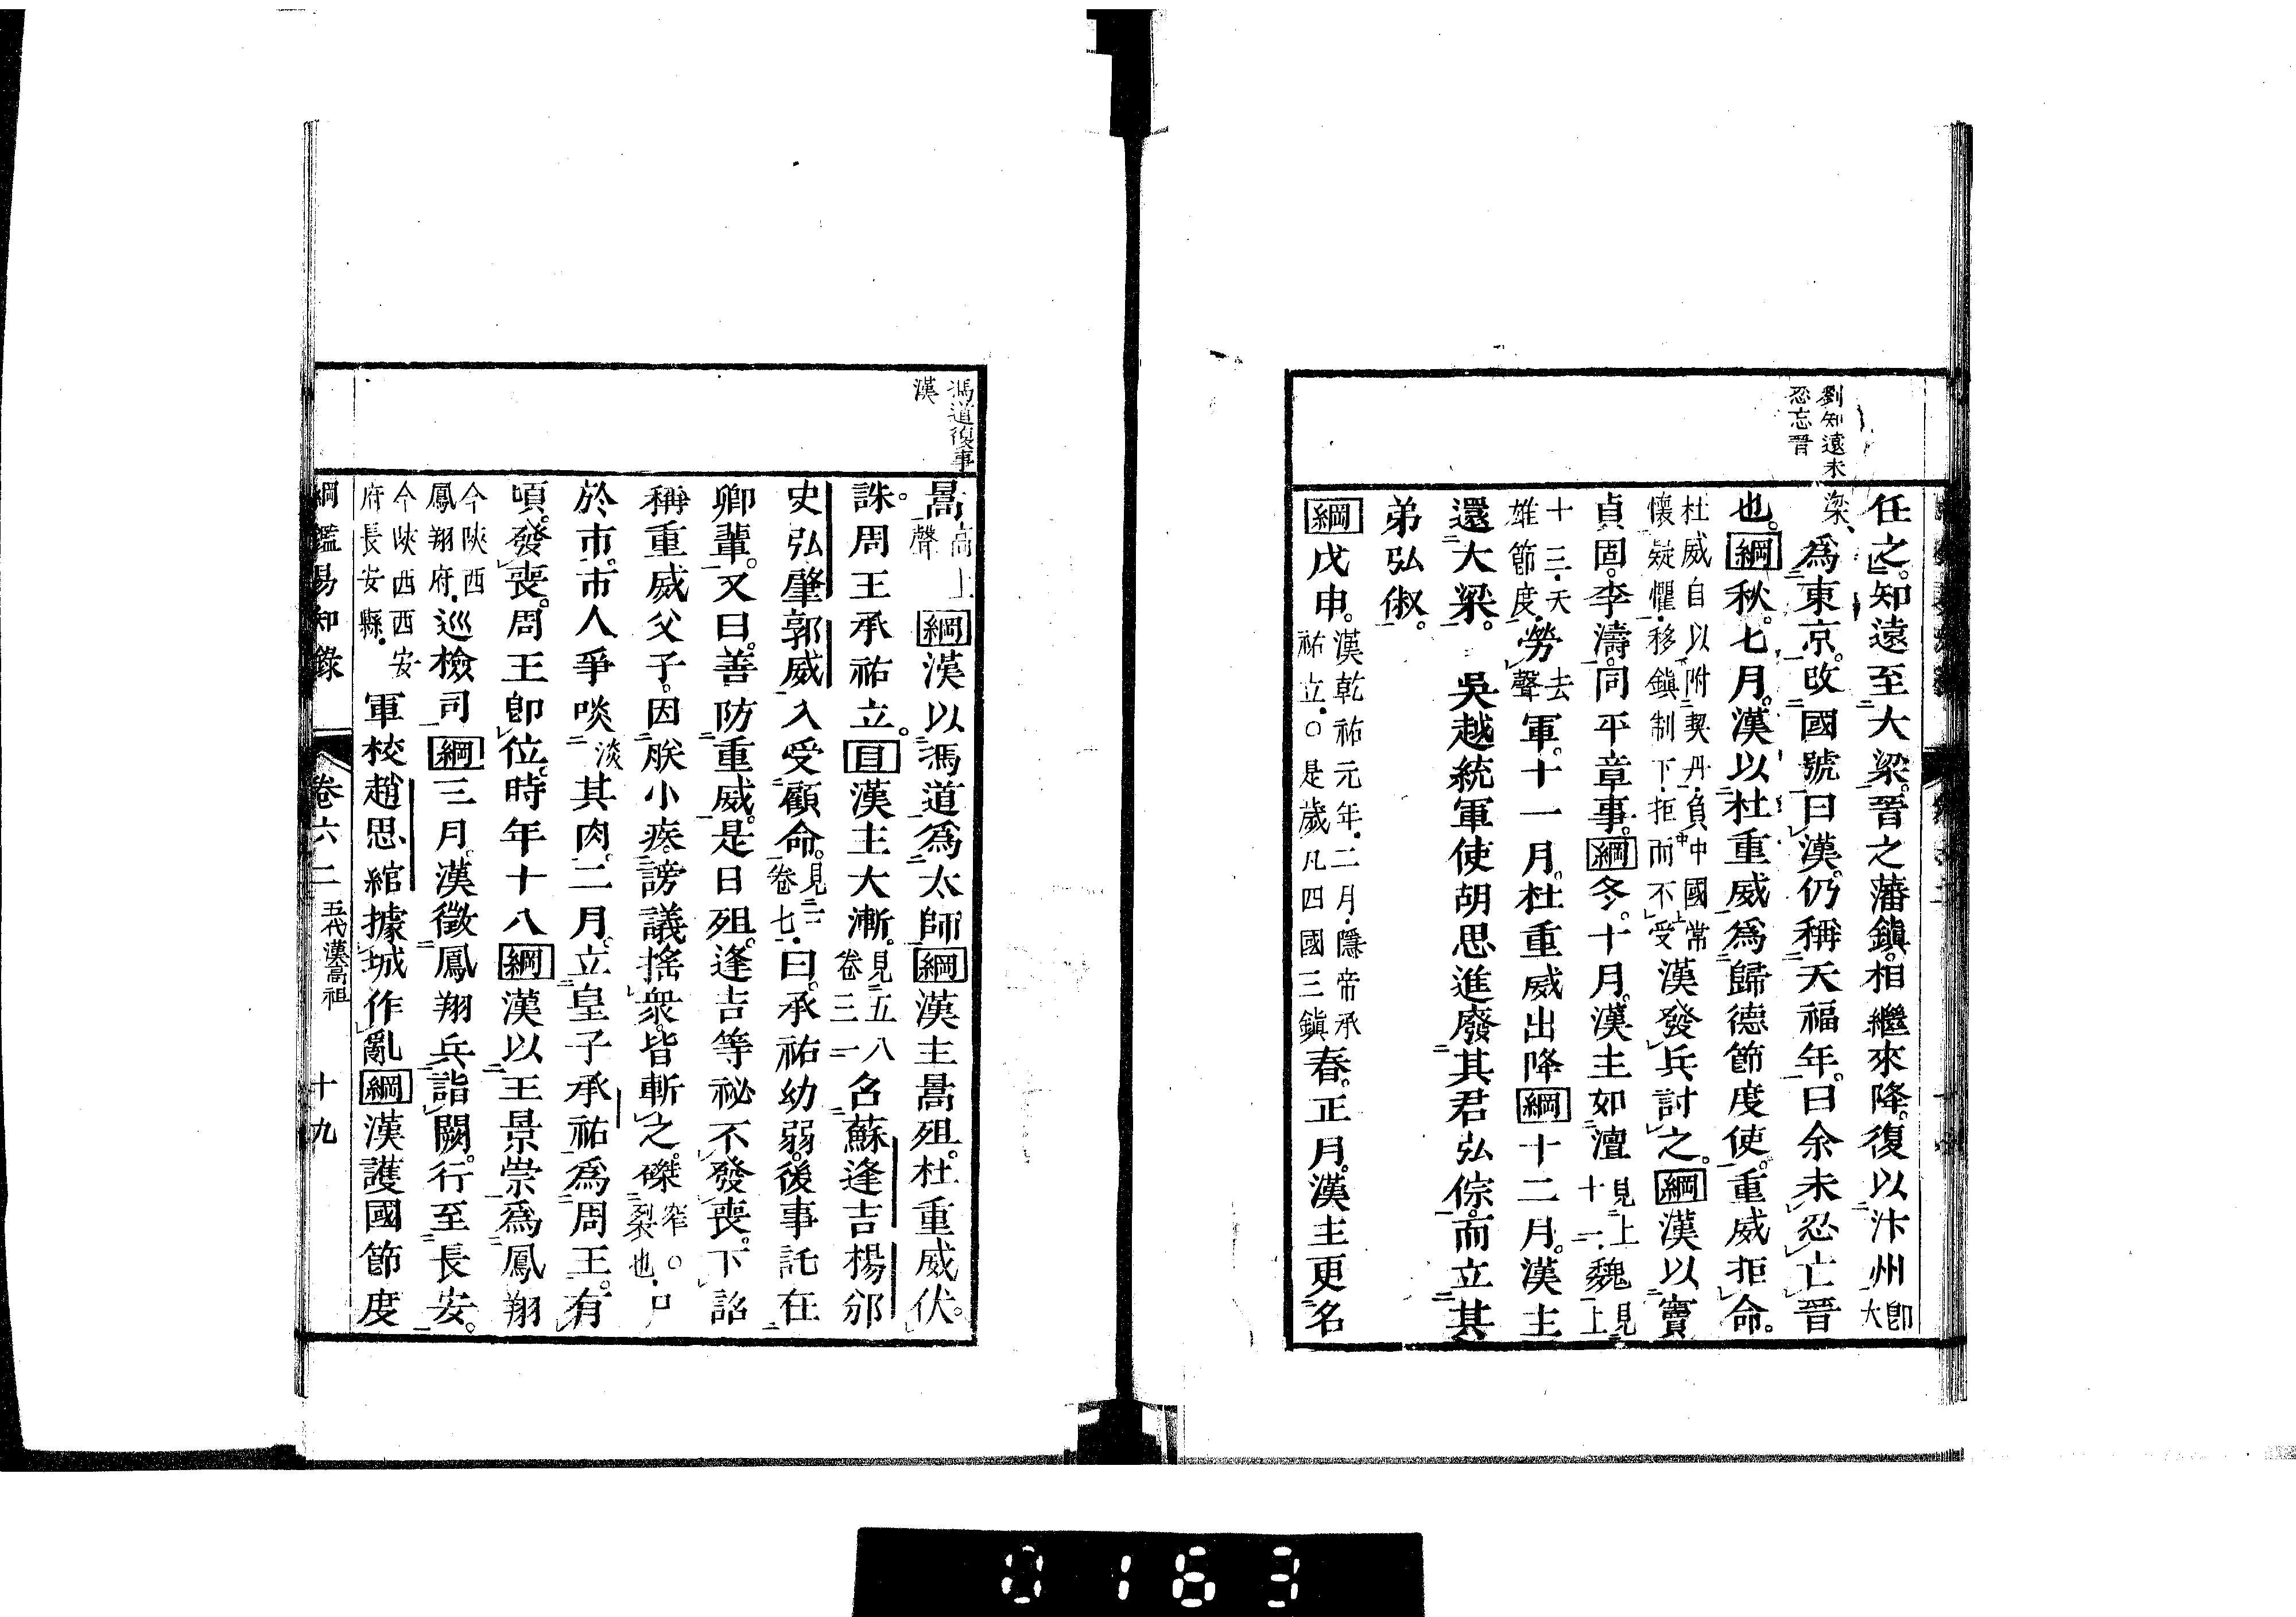 劉知遠未
忍忘晉
任之。知遠至大梁。晉之藩鎮。相繼來降。復以汴州卽大
梁、爲東京。改國號曰漢。仍稱天福年。曰余未忍亡晉
也。綱秋。七月。漢以杜重威爲歸德節度使。重威拒命。
杜威自以附契丹.負中國常
懷疑懼.移鎭制下.拒而不受漢發兵討之。綱漢以竇
貞固。李濤。同平章事。綱冬。十月。漢主如澶見上十一.魏見上
十三.天雄節度.勞去聲軍。十一月。杜重威出降綱十二月。漢主
還大梁。吳越統軍使胡思進廢其君弘倧。而立其
弟弘俶。
綱戊申。漢乾祐元年.二月.隱帝承祐立.○是歲凡四國三鎭春。正月。漢主更名
馮道復事
漢
暠高上聲綱漢以馮道爲太師綱漢主暠殂。杜重威伏。
誅。周王承祐立。目漢主大漸。見五八卷三一召蘇逢吉楊邠
史弘肇郭威入受顧命。見二卷七.曰。承祐幼弱。後事託在
卿輩。又曰。善防重威。是日殂。逢吉等祕不發喪。下詔
稱重威父子。因朕小疾。謗議搖衆。皆斬之。磔窄○裂也.尸
於市。市人爭啖淡其肉。二月。立皇子承祐爲周王。有
頃。發喪。周王卽位。時年十八綱漢以王景崇爲鳳翔
今陝西鳳翔府.巡檢司綱三月。漢徵鳳翔兵詣闕。行至長安。
今陝西西安府長安縣.軍校趙思綰據城作亂綱漢護國節度
綱鑑易知錄 卷六二 五代漢高祖 十九
0163